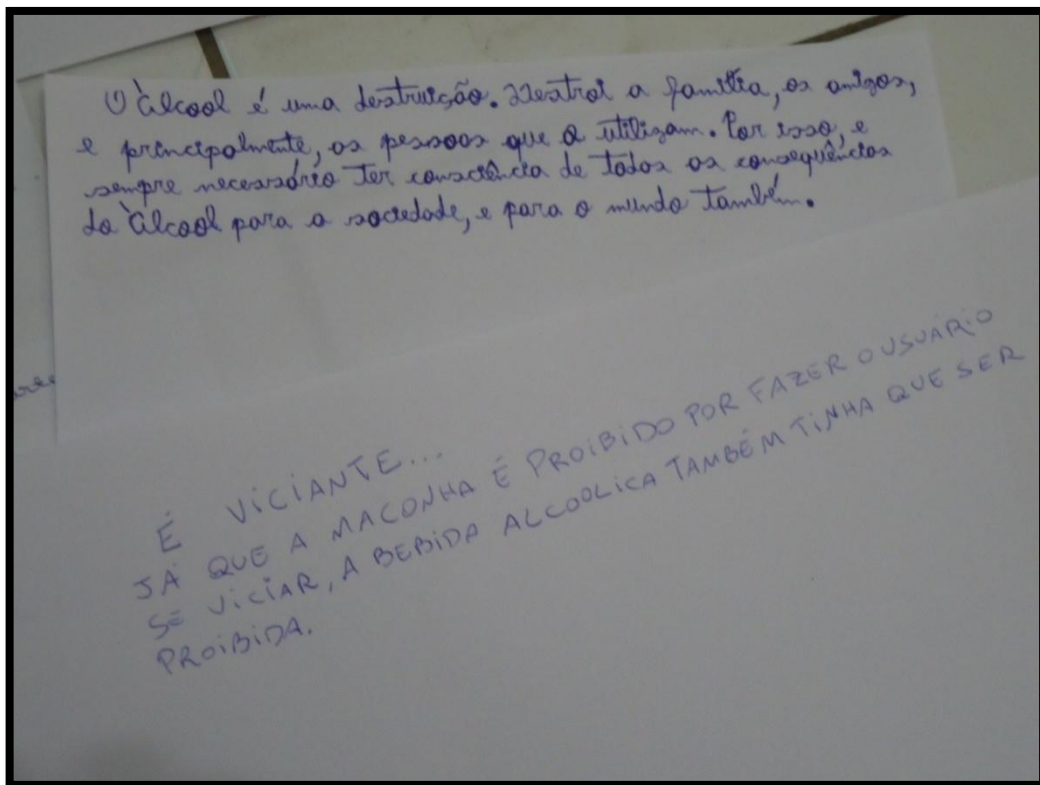 O àlcool é uma destruição. Destroi a família, os amigos,
e principalmente, as pessoas que o utilizam. Por isso, e
sempre necessário ter consciência de todas as consequências
do àlcool para a sociedade, e para o mundo também.
É VICIANTE...
JÁ QUE A MACONHA É PROIBIDO POR FAZER O USUÁRIO
SE VICIAR, A BEBIDA ALCOOLICA TAMBÉM TINHA QUE SER
PROIBIDA.